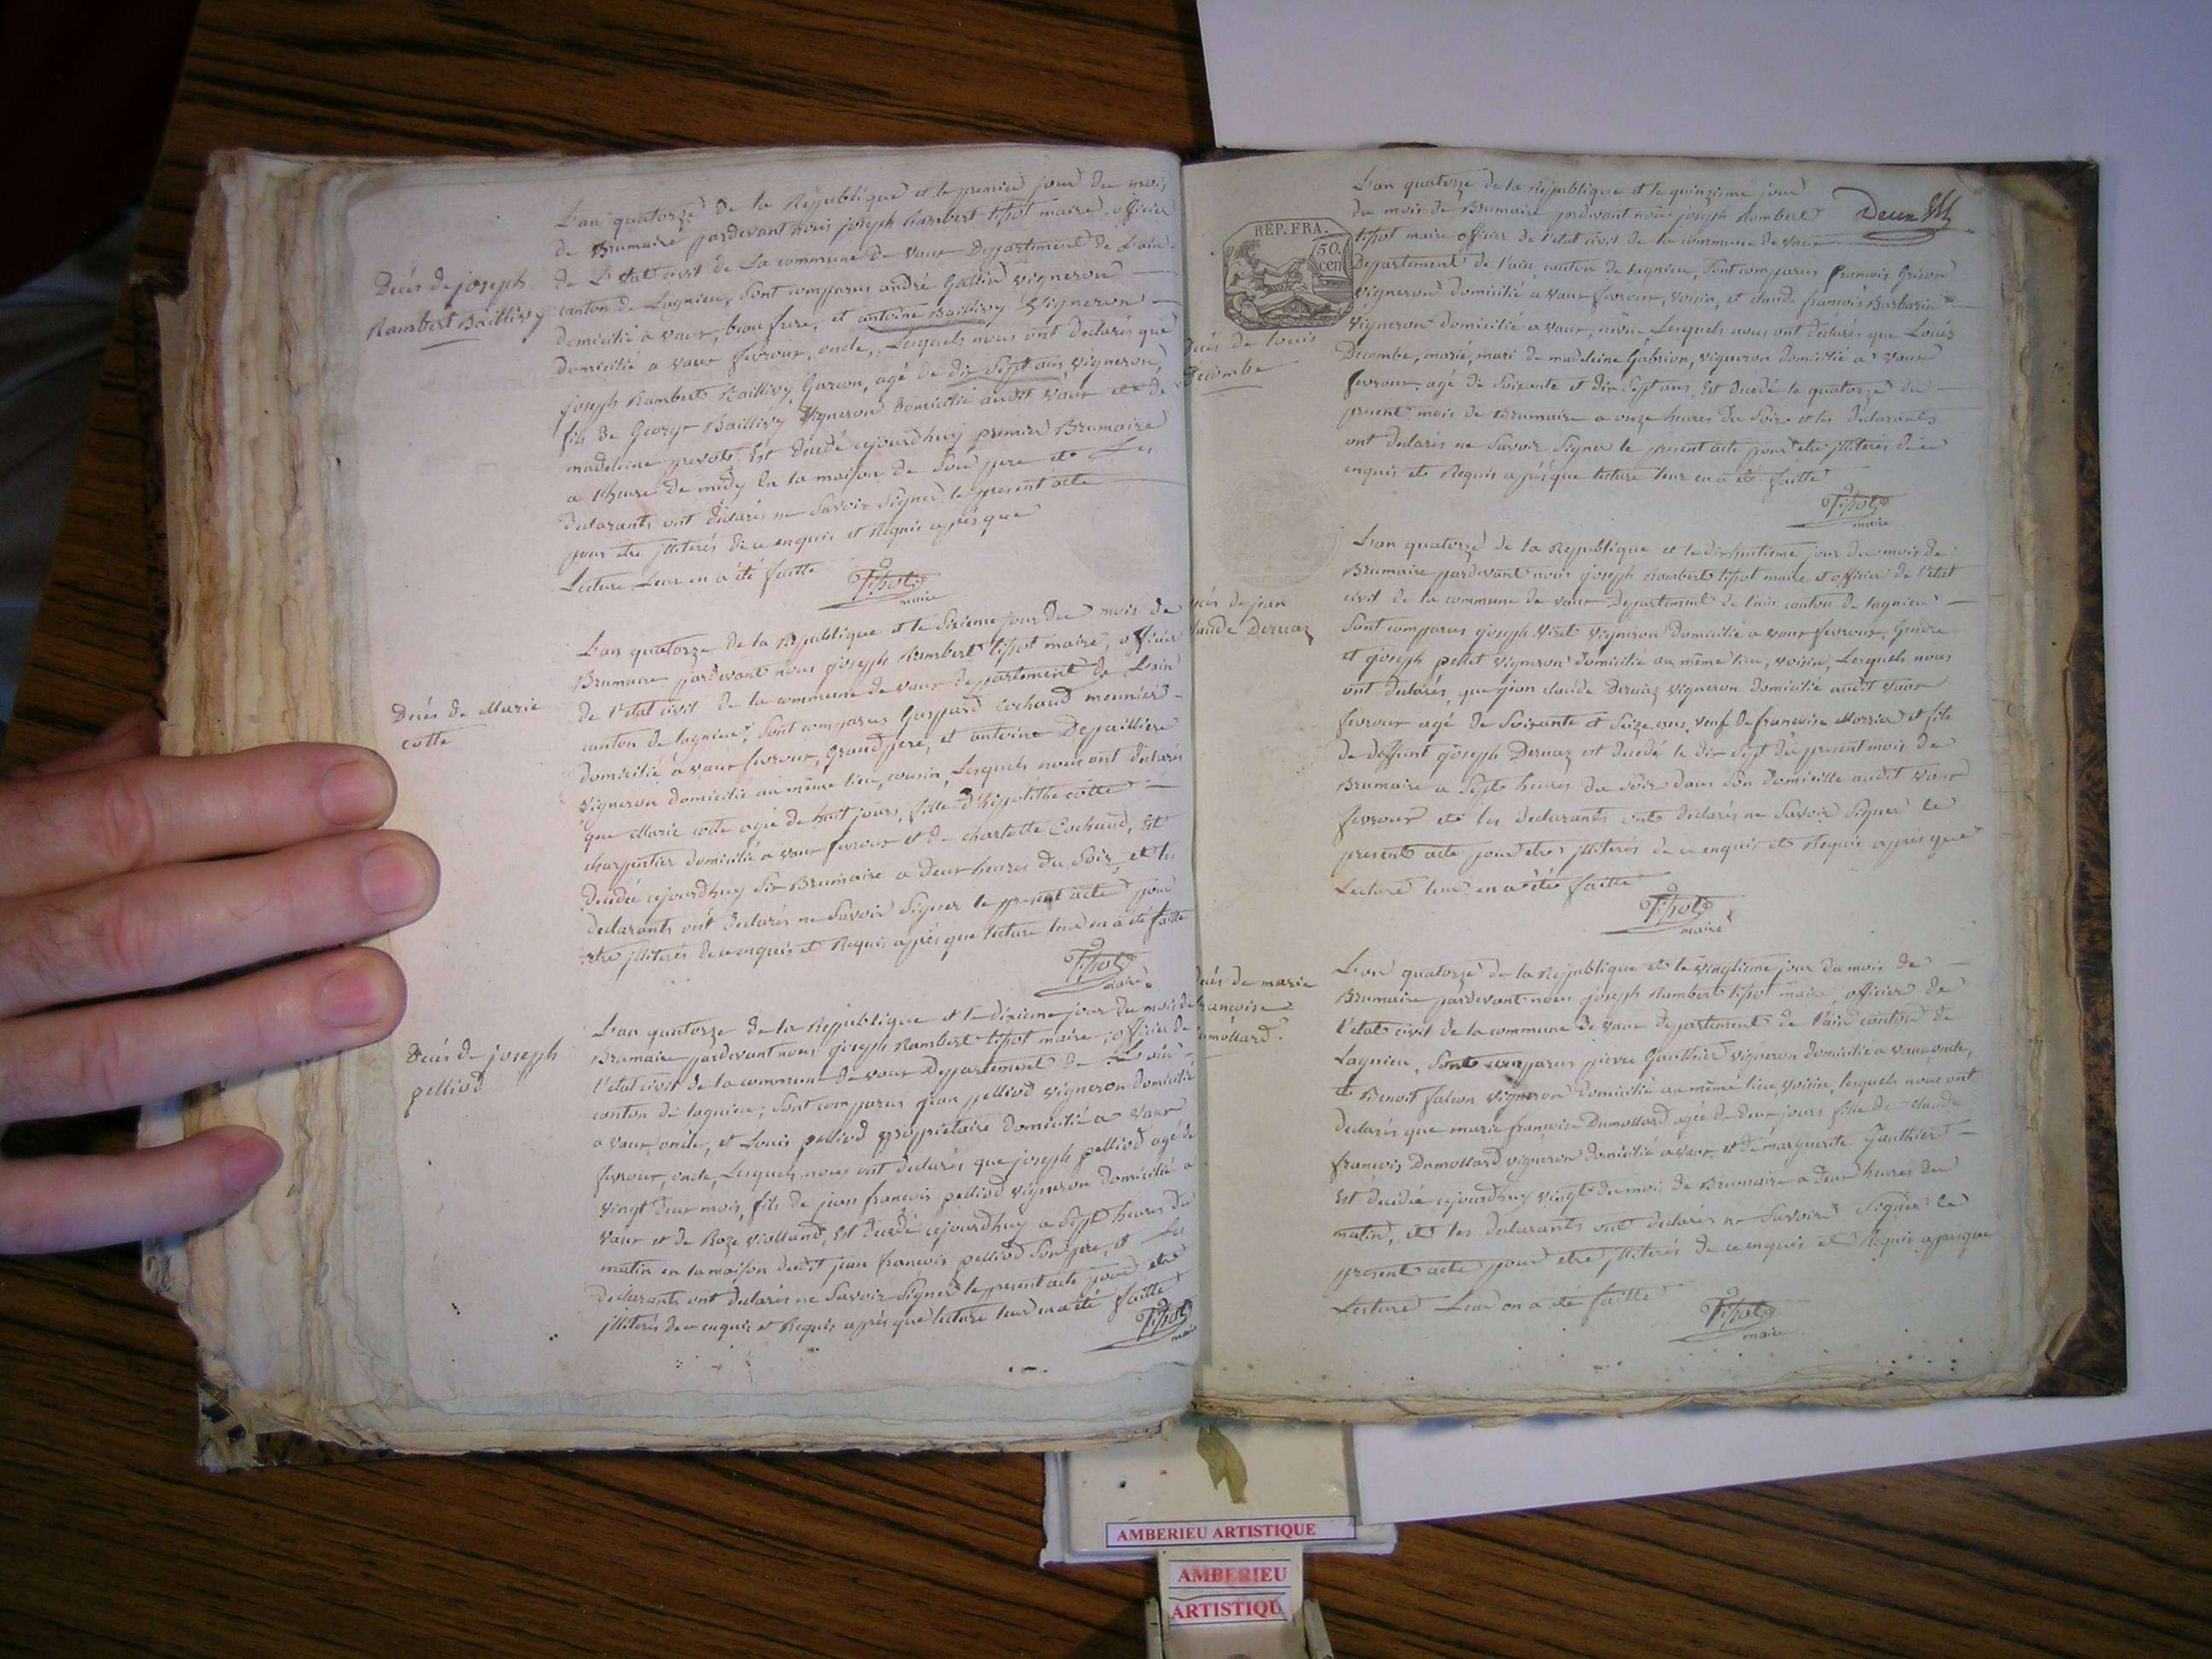 L'an quatorze de la Republique et le premier jour du mois
de Brumaire pardevant nous joseph Rambert tissot maire officier
de L'etat civil de La commune de vaux Departement de Lain
canton de Lagnieu, sont comparus andré Gallin vigneron
domicilié a vaux, beau frere, et antoine Baillivy Vigneron
domicilié a vaux fevroux, oncle, Lesquels nous ont declarés que
joseph Rambert Baillivy, Garcon, agé de dix sept ans, vigneron,
fils de George Baillivy Vigneron domicilié audit vaux et de
madeleine prevot Est décédé cejourdhuy premier Brumaire
a l'heure de midy En la maison de Son pere et Les
declarants ont déclarés ne Savoir Signer le present acte
pour etre jlliterés de ce enquis et Requis après que
Lecture Leur en a été faitte
Tissot
maire
Décés de joseph
Rambert Baillivy
L'an quatorze de la Republique et le Sixieme jour du mois de
Brumaire pardevant nous joseph Rambert tissot maire, officier
de l'etat civil de la commune de vaux departement de Lain
canton de lagnieu; Sont comparus Gaspard Cochaud meunier
domicilié a vaux fevroux, Grand pere, et antoine Depailliere
Vigneron domicilié au même lieu, cousin, Lesquels nous ont déclarés
que Marie cotte agée de huit jours, fille d'hippolithe cotte
charpentier domicilié a vaux fevroux et de charlotte Cochaud, Est
Decédée cejourdhuy Six Brumaire a Deux heures du Soir, et les
declarants ont declarés ne Savoir Signer le present acte pour
etre jlliterés de ce enquis et Requis après que lecture leur en a été faitte
Tissot
maire
Décés de Marie
cotte
L'an quatorze de la Republique et le dixieme jour du mois de
Brumaire pardevant nous joseph Rambert tissot maire, officier de
l'etat civil de la commune de vaux Departement de Lain
canton de lagnieu; Sont comparus jean pelliod vigneron domicilié
a vaux, oncle, et Louis pelliod propriétaire domicilié a vaux
fevroux, oncle, Lesquels nous ont declarés que joseph pelliod agé de
vingt deux mois, fils de jean francois pelliod vigneron domicilié a
vaux et de Roze violland, Est decédé cejourdhuy a Sept heures du
matin en la maison dudit jean francois pelliod Son pere, et Les
Declarants ont declarés ne Savoir Signer le present acte pour etre
jlliterés de ce enquis et Requis après que lecture leur en a été faitte
Tissot
maire
Décés de joseph
pelliod
L'an quatorze de la Republique et le quinzieme jour
du mois de Brumaire pardevant nous joseph Rambert
tissot maire officier de l'etat civil de la commune de vaux
Departement de l'ain, canton de lagnieu, Sont comparus francois Grison
vigneron domicilié a vaux fevroux, voisin, et claude francois Barbarin
Vigneron domicilié a vaux, neveu Lesquels nous ont déclarés que Louis
Decombe, marié, mari de madeleine Gabrion, vigneron domicilié a vaux
fevroux agé de Soixante et dix Sept ans, Est decédé le quatorze du
present mois de Brumaire a onze heures du Soir et les déclarants
ont declarés ne Savoir Signer le present acte pour etre jlliterés de ce
enquis et Requis après que lecture leur en a été faitte
Tissot
maire
REP. FRA.
50.
cen
Deux
écés de louis
Decombe
L'an quatorze de la Republique et le dix huitieme jour du mois de
Brumaire pardevant nous joseph Rambert tissot maire et officier de l'etat
civil de la commune de vaux Departement de l'ain canton de lagnieu
Sont comparus joseph Viret Vigneron Domicilié a vaux fevroux, Gendre
et joseph pellet vigneron domicilié au même lieu, voisin, Lesquels nous
ont declarés que jean claude Deruaz vigneron domicilié audit vaux
fevroux agé de Soixante et Seize ans, veuf de francoise Morrier et fils
de deffunt joseph Deruaz est decedé le dix Sept du present mois de
Brumaire a Sept heures du Soir dans Son domicille audit vaux
fevroux et les declarants ont declarés ne Savoir Signer le
present acte pour etre jlliterés de ce enquis et Requis après que
Lecture leur en a été faitte
Tissot
maire
écés de jean
laude Deruaz
L'an quatorze de la Republique et le vingtieme jour du mois de
Brumaire pardevant nous joseph Rambert tissot maire, officier de
l'etat civil de la commune de vaux departement de l'ain canton de
Lagnieu, Sont comparus pierre Gauthier vigneron domicilié a vaux, oncle,
et Benoit falcon vigneron Domicilié au même lieu, voisin, lesquels nous ont
declarés que marie francoise Dumollard agée de deux jours fille de claude
francois Dumollard vigneron domicilié a vaux et de marguerite Gauthier
Est décédée cejourdhuy vingt du mois de Brumaire a deux heures du
matin, et les declarants ont declarés ne Savoir Signer le
present acte pour etre jlliterés de ce enquis et Requis apresque
Lecture Leur en a été faitte
Tissot
maire
écés de marie
rancoise
umollard.
AMBERIEU ARTISTIQUE
AMBERIEU
ARTISTIQU